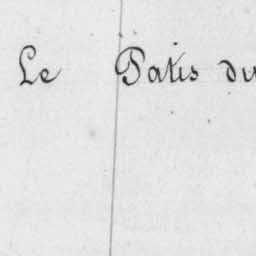 Le Patis du